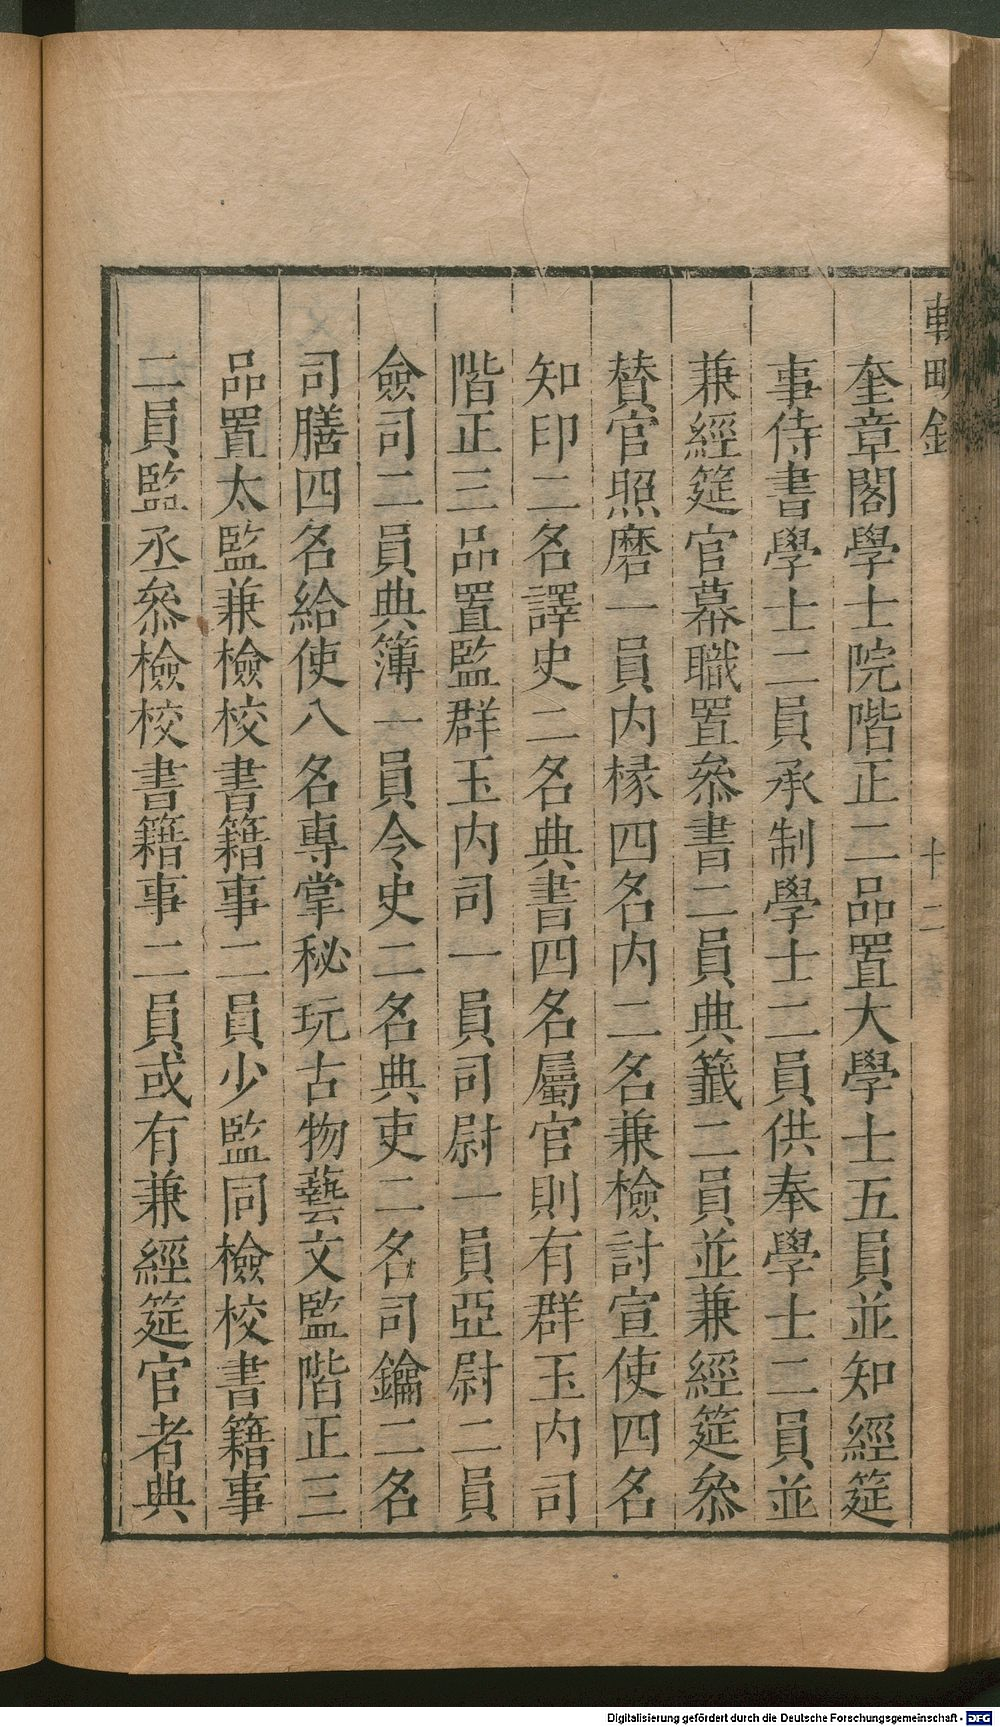 奎章閣學士院階正二品置大學士五員並知經筵
事侍書學士二員承制學士二員供奉學士二員並
兼經筵官幕職置叅書二員典籖二員並兼經筵叅
賛官照磨一員内椽四名内二名兼檢討宣使四名
知印二名譯史二名典書四名屬官則有群玉内司
階正三品置監群玉内司一員司尉一員亞尉二員
僉司二員典簿一員令史二名典吏二名司鑰二名
司膳四名給使八名專掌秘玩古物藝文監階正三
品置太監兼檢校書籍事二員少監同檢校書籍事
二員監丞叅檢校書籍事二員或有兼經筵官者典
十二
Digitalisierung gefördert durch die Deutsche Forschungsgemeinschaft - DFG